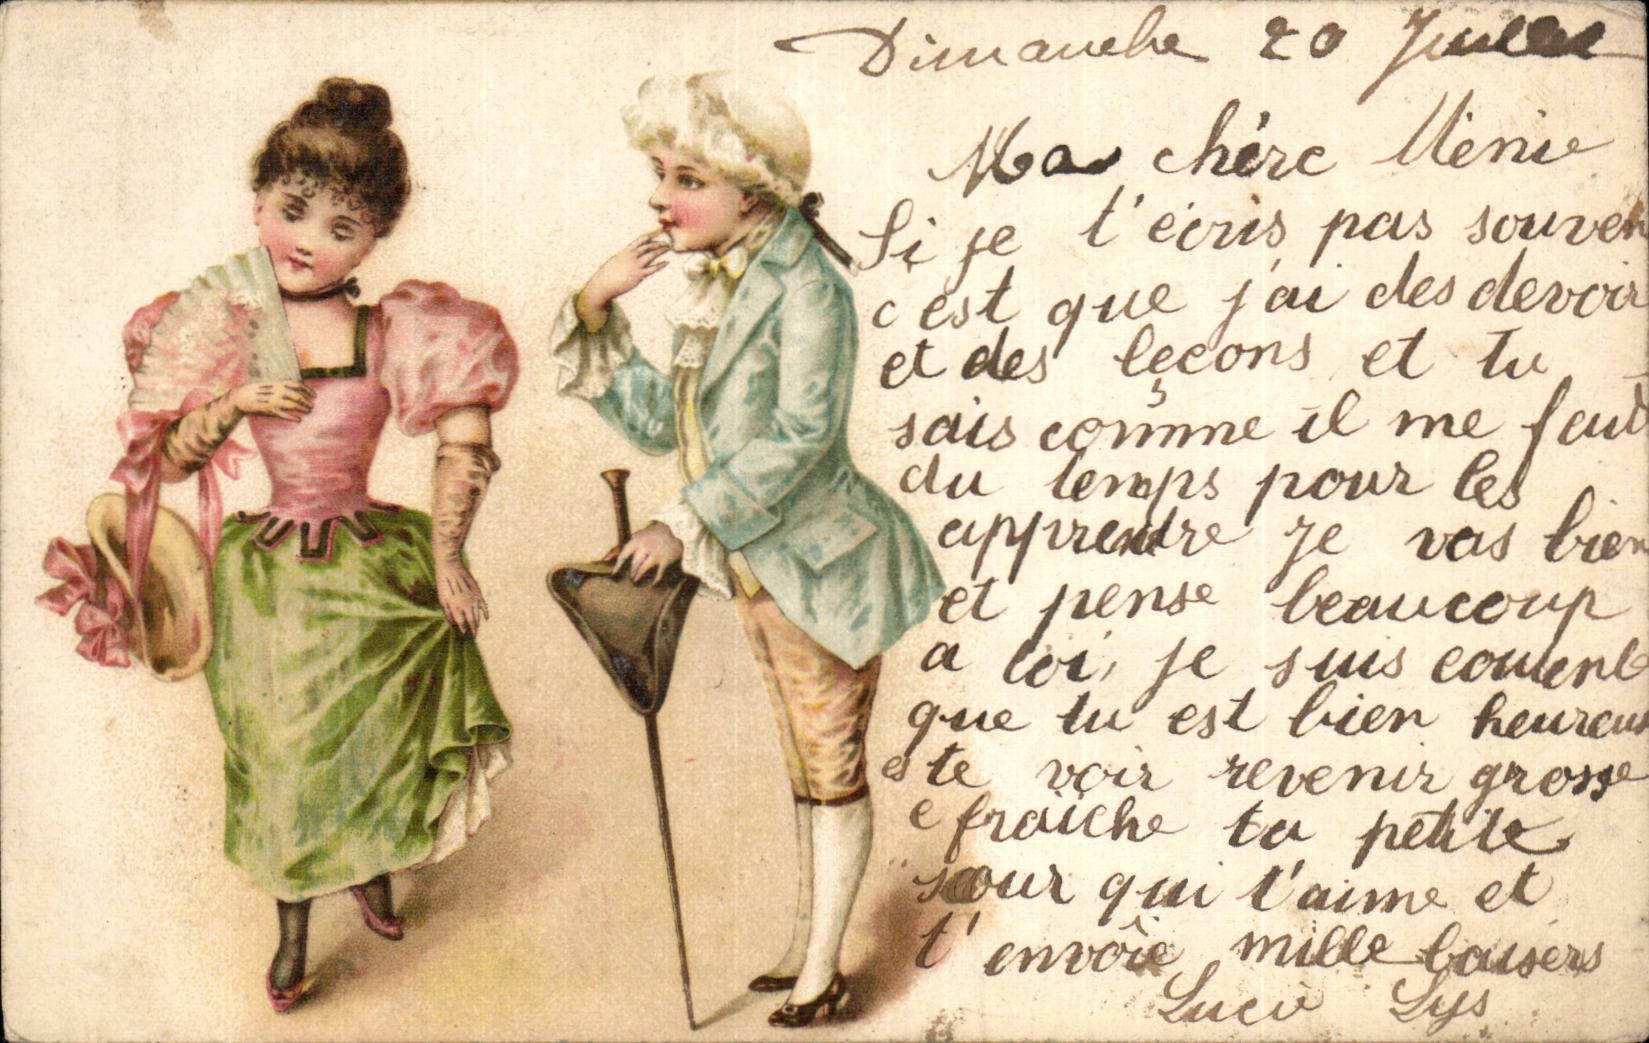 Dimanche 20 Juillet
Ma chère Ninie
Si je t'écris pas souven
c'est que j'ai des devoir
et des leçons et tu
sais comme il me faut
du temps pour les
apprendre je vas bien
et pense beaucoup
a toi, je suis content
que tu est bien heureux
et te voir revenir grosse
e fraîche ta petite
sœur qui t'aime et
t'envoie mille baisers
Lucie Lys